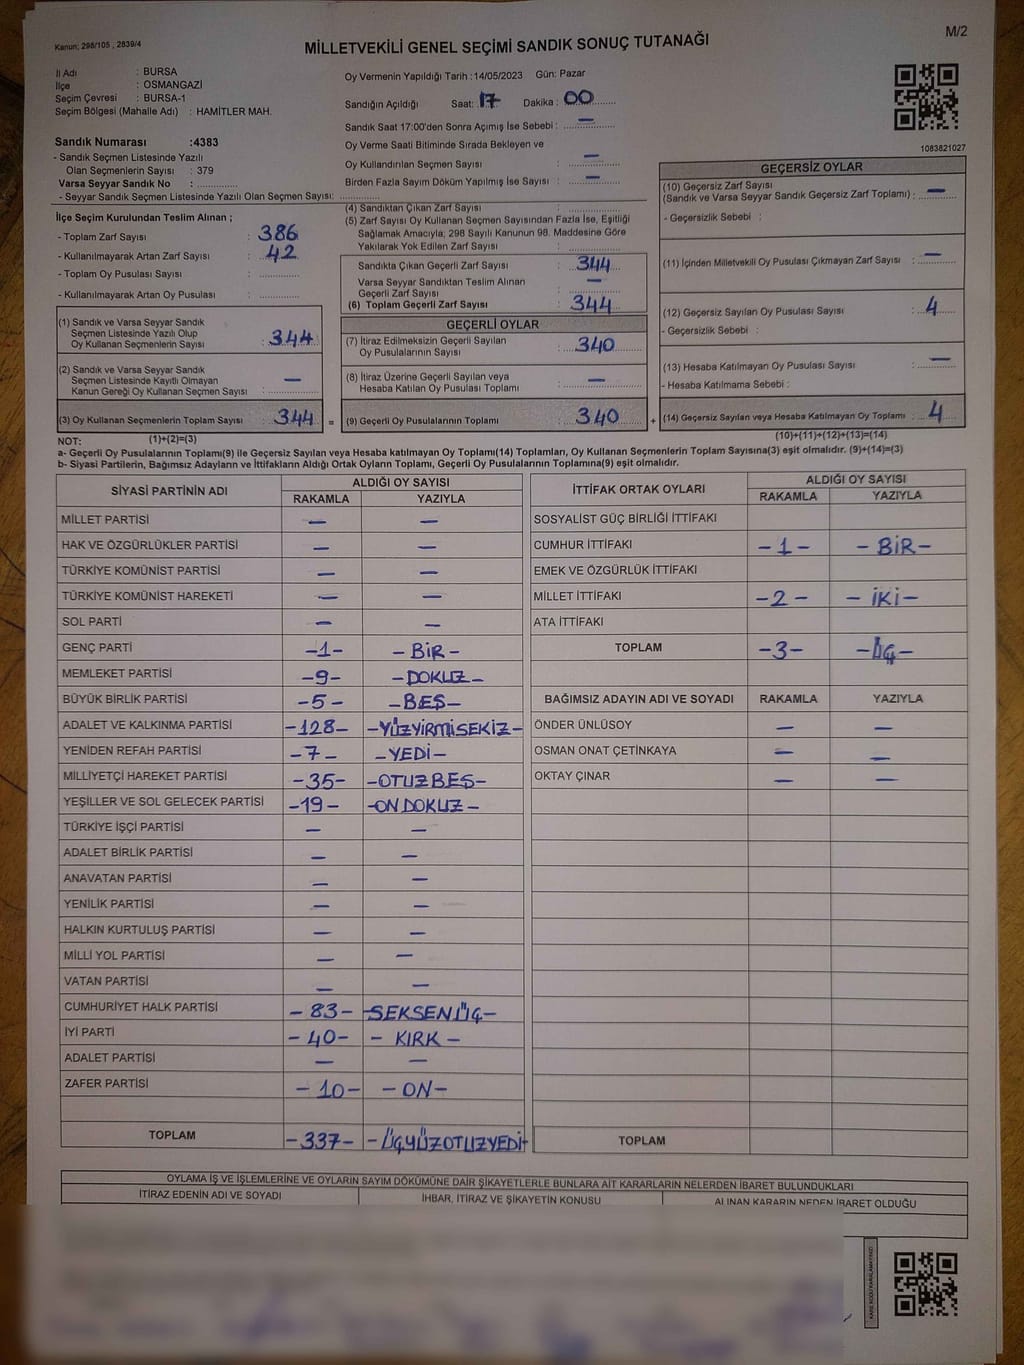 Kanun; 298/105 , 2839/4
MİLLETVEKİLİ GENEL SEÇİMİ SANDIK SONUÇ TUTANAĞI
M/2
İl Adı : BURSA
İlçe : OSMANGAZİ
Seçim Çevresi : BURSA-1
Seçim Bölgesi (Mahalle Adı) : HAMİTLER MAH.
Sandık Numarası :4383
- Sandık Seçmen Listesinde Yazılı
Olan Seçmenlerin Sayısı : 379
Varsa Seyyar Sandık No : ..............
- Seyyar Sandık Seçmen Listesinde Yazılı Olan Seçmen Sayısı: ..............
Oy Vermenin Yapıldığı Tarih :14/05/2023 Gün: Pazar
Sandığın Açıldığı Saat: 17 Dakika : 00
Sandık Saat 17:00'den Sonra Açımış İse Sebebi : —
Oy Verme Saati Bitiminde Sırada Bekleyen ve
Oy Kullandırılan Seçmen Sayısı : —
Birden Fazla Sayım Döküm Yapılmış İse Sayısı : —
1083821027
İlçe Seçim Kurulundan Teslim Alınan ;
- Toplam Zarf Sayısı : 386
- Kullanılmayarak Artan Zarf Sayısı : 42
- Toplam Oy Pusulası Sayısı : ..............
- Kullanılmayarak Artan Oy Pusulası : ..............
(1) Sandık ve Varsa Seyyar Sandık
Seçmen Listesinde Yazılı Olup
Oy Kullanan Seçmenlerin Sayısı : 344
(2) Sandık ve Varsa Seyyar Sandık
Seçmen Listesinde Kayıtlı Olmayan
Kanun Gereği Oy Kullanan Seçmen Sayısı : —
(3) Oy Kullanan Seçmenlerin Toplam Sayısı : 344 =
(4) Sandıktan Çıkan Zarf Sayısı : ..............
(5) Zarf Sayısı Oy Kullanan Seçmen Sayısından Fazla İse, Eşitliği
Sağlamak Amacıyla; 298 Sayılı Kanunun 98. Maddesine Göre
Yakılarak Yok Edilen Zarf Sayısı : ..............
Sandıkta Çıkan Geçerli Zarf Sayısı : 344
Varsa Seyyar Sandıktan Teslim Alınan
Geçerli Zarf Sayısı : —
(6) Toplam Geçerli Zarf Sayısı : 344
GEÇERLİ OYLAR
(7) İtiraz Edilmeksizin Geçerli Sayılan
Oy Pusulalarının Sayısı : 340
(8) İtiraz Üzerine Geçerli Sayılan veya
Hesaba Katılan Oy Pusulası Toplamı : —
(9) Geçerli Oy Pusulalarının Toplamı : 340 +
GEÇERSİZ OYLAR
(10) Geçersiz Zarf Sayısı
(Sandık ve Varsa Seyyar Sandık Geçersiz Zarf Toplamı) : —
- Geçersizlik Sebebi :
(11) İçinden Milletvekili Oy Pusulası Çıkmayan Zarf Sayısı : —
(12) Geçersiz Sayılan Oy Pusulası Sayısı : 4
- Geçersizlik Sebebi :
(13) Hesaba Katılmayan Oy Pusulası Sayısı : —
- Hesaba Katılmama Sebebi :
(14) Geçersiz Sayılan veya Hesaba Katılmayan Oy Toplamı : 4
NOT: (1)+(2)=(3) (10)+(11)+(12)+(13)=(14)
a- Geçerli Oy Pusulalarının Toplamı(9) ile Geçersiz Sayılan veya Hesaba katılmayan Oy Toplamı(14) Toplamları, Oy Kullanan Seçmenlerin Toplam Sayısına(3) eşit olmalıdır. (9)+(14)=(3)
b- Siyasi Partilerin, Bağımsız Adayların ve İttifakların Aldığı Ortak Oyların Toplamı, Geçerli Oy Pusulalarının Toplamına(9) eşit olmalıdır.
SİYASİ PARTİNİN ADI ALDIĞI OY SAYISI
RAKAMLA YAZIYLA
MİLLET PARTİSİ — —
HAK VE ÖZGÜRLÜKLER PARTİSİ — —
TÜRKİYE KOMÜNİST PARTİSİ — —
TÜRKİYE KOMÜNİST HAREKETİ — —
SOL PARTİ — —
GENÇ PARTİ -1- -BİR-
MEMLEKET PARTİSİ -9- -DOKUZ-
BÜYÜK BİRLİK PARTİSİ -5- -BEŞ-
ADALET VE KALKINMA PARTİSİ -128- -YÜZYİRMİSEKİZ-
YENİDEN REFAH PARTİSİ -7- -YEDİ-
MİLLİYETÇİ HAREKET PARTİSİ -35- -OTUZBEŞ-
YEŞİLLER VE SOL GELECEK PARTİSİ -19- -ONDOKUZ-
TÜRKİYE İŞÇİ PARTİSİ — —
ADALET BİRLİK PARTİSİ — —
ANAVATAN PARTİSİ — —
YENİLİK PARTİSİ — —
HALKIN KURTULUŞ PARTİSİ — —
MİLLİ YOL PARTİSİ — —
VATAN PARTİSİ — —
CUMHURİYET HALK PARTİSİ -83- -SEKSENÜÇ-
İYİ PARTİ -40- -KIRK-
ADALET PARTİSİ — —
ZAFER PARTİSİ -10- -ON-
TOPLAM -337- -ÜÇYÜZOTUZYEDİ-
İTTİFAK ORTAK OYLARI ALDIĞI OY SAYISI
RAKAMLA YAZIYLA
SOSYALİST GÜÇ BİRLİĞİ İTTİFAKI
CUMHUR İTTİFAKI -1- -BİR-
EMEK VE ÖZGÜRLÜK İTTİFAKI
MİLLET İTTİFAKI -2- -İKİ-
ATA İTTİFAKI
TOPLAM -3- -ÜÇ-
BAĞIMSIZ ADAYIN ADI VE SOYADI RAKAMLA YAZIYLA
ÖNDER ÜNLÜSOY — —
OSMAN ONAT ÇETİNKAYA — —
OKTAY ÇINAR — —
TOPLAM
OYLAMA İŞ VE İŞLEMLERİNE VE OYLARIN SAYIM DÖKÜMÜNE DAİR ŞİKAYETLERLE BUNLARA AİT KARARLARIN NELERDEN İBARET BULUNDUKLARI
İTİRAZ EDENİN ADI VE SOYADI İHBAR, İTİRAZ VE ŞİKAYETİN KONUSU ALINAN KARARIN NEDEN İBARET OLDUĞU